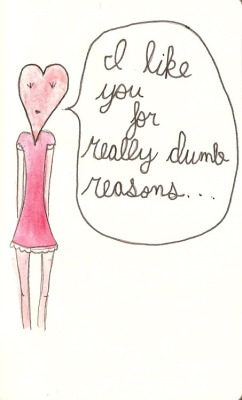 I like
you
for
really dumb
reasons...